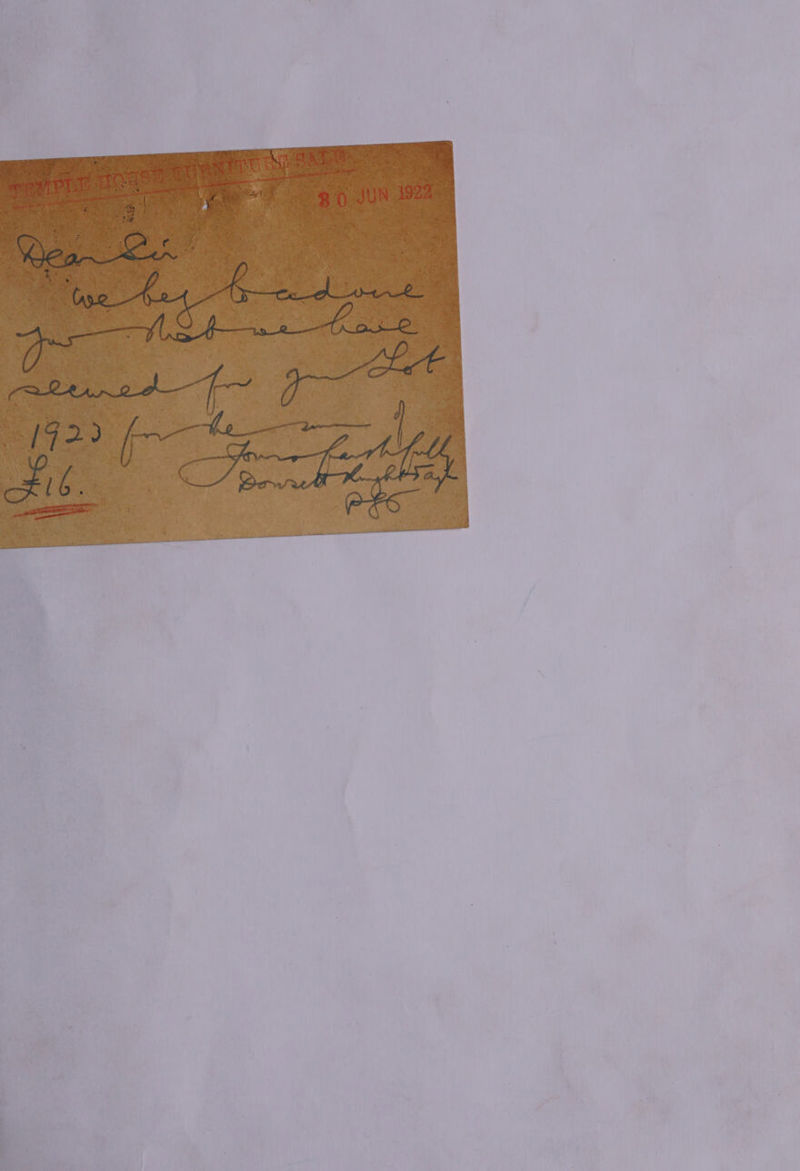 TEMPLE HOUSE FURNITURE SALE
30 JUN 1922
Dear Sir
we beg to advise
you that we have
secured for you Lot
1923 for the sum of
£16.
Yours faithfully
Dowsett Knight & Tayl